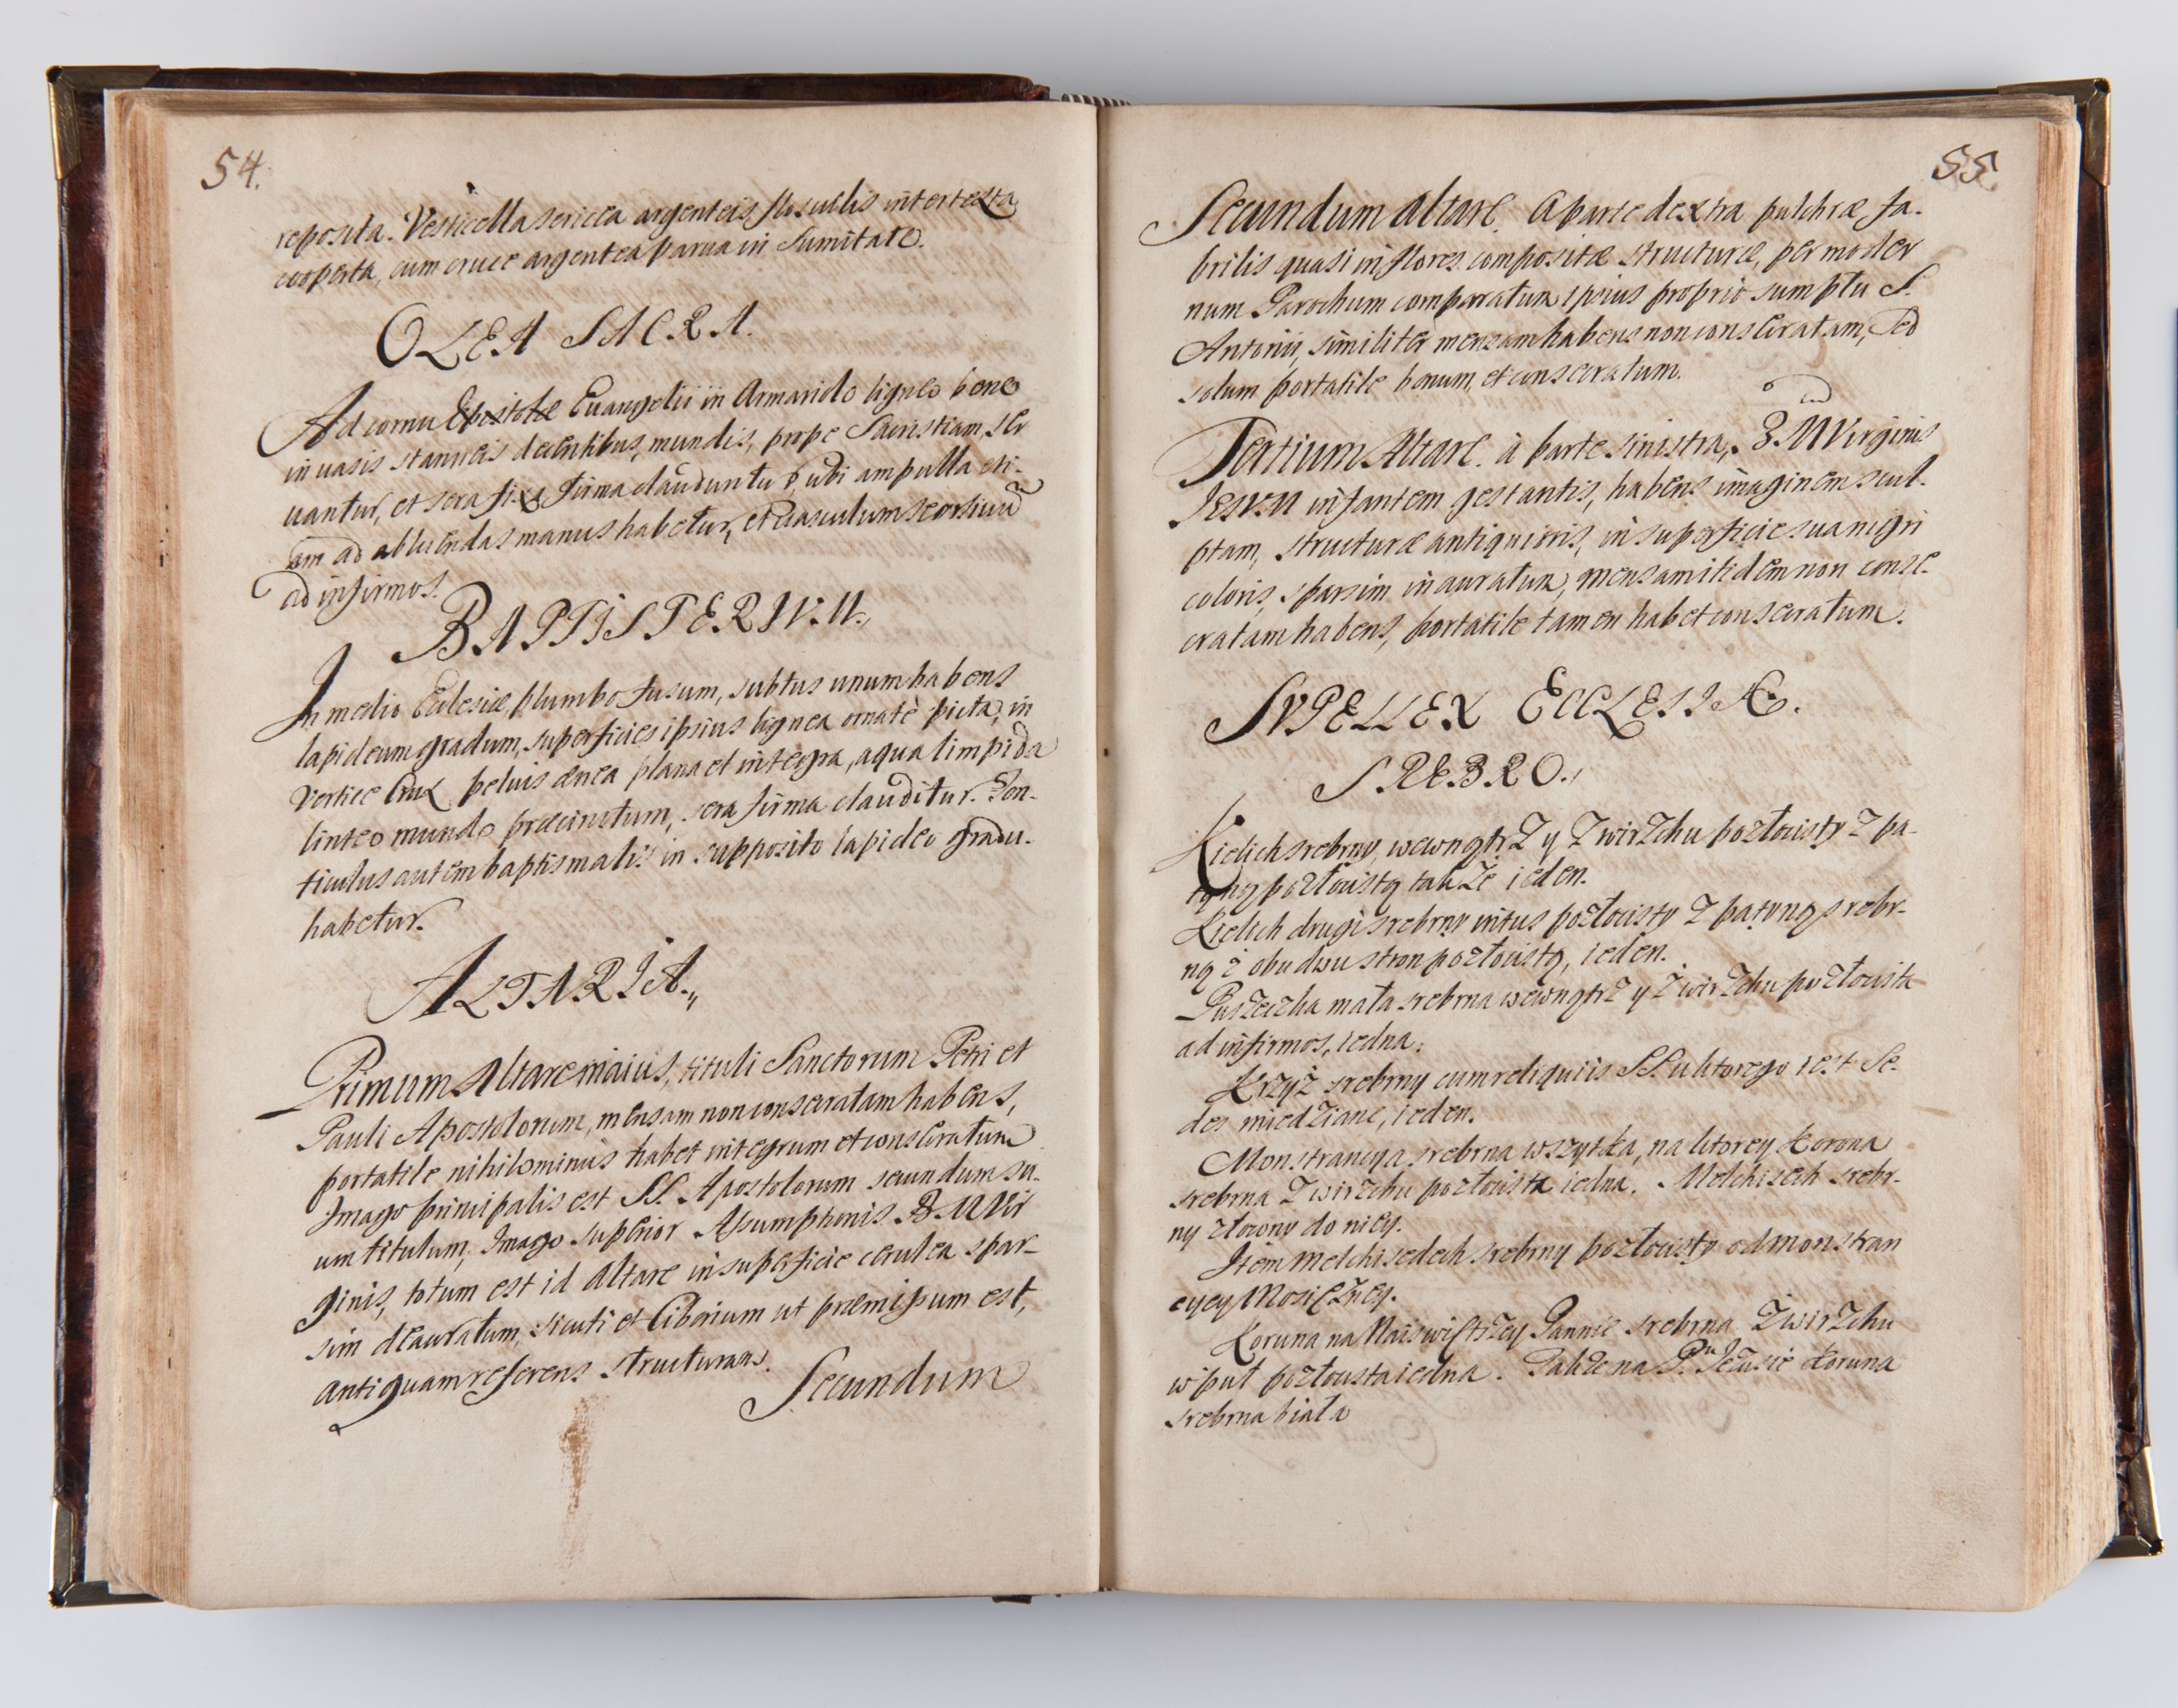 54.
reposita. Vesticella sericea argenteis flosculis intertexta
cooperta, cum cruce argentea parua in Sumitate.
OLEA SACRA.
Ad cornu Epistolæ Euangelii in Armariolo ligneo bene
in uasis stanneis decentibus, mundis, prope Sacristiam, ser
uantur, et sera fixa firma clauduntur, ubi ampulla eti-
am ad abluendas manus habetur, et uasculum seorsiuũ
ad infirmos.
BAPTISTERIVM.,
In medio Eclesiæ, plumbo fusum, subtus unum habens
lapideum gradum, superficies ipsius lignea ornatè picta, in
vertice Crux peluis ænea plana et integra, aqua limpida
linteo mundo præcinctum, sera firma clauditur. Fon-
ticulus autem baptismalis in supposito lapideo gradu.
habetur.
ALTARIA.,,
Primum Altare maius, tituli Sanctorum Petri et
Pauli Apostolorum, mensam non consecratam habens,
portatile nihilominus habet integrum et consecratum
Imago principalis est SS. Apostolorum secundum su-
um titulum, Imago superior Assumptionis B M Vir
ginis, totum est id Altare in superficie cerulea spar-
sim deauratum, sicuti et Ciborium ut præmissum est,
antiquam referens structuram.
Secundum
55
Secundum altare. A parte dextra pulchræ fa-
brilis quasi in flores compositæ structuræ, per moder
num Parochum comparatum ipsius proprio sumptu S.
Antonii, similiter mensam habens non consecratam, sed
solum portatile bonum, et consecratum.
Tertium Altare. à parte sinistra, B. M Virginis
JESVM infantem gestantis, habens imaginem scul-
ptam, structuræ antiquioris, in superficie sua nigri
coloris, sparsim inauratum, mensam itidem non conse-
cratam habens, portatile tamen habet consecratum.
SVPELLEX ECCLESIÆ.
SREBRO.,
Kielich srebrny, wewnątrz y z wirzchu pozłocisty z pa-
tyną pozłocistą takze ieden.
Kielich drugi srebrny intus pozłocisty z patyną srebr-
ną z obudwu stron pozłocistą, ieden.
Puszeczka mała srebrna wewnątrz y z wirzchu pozłocista
ad infirmos, iedna.
Krzyż srebrny cum reliquiis SS. u ktorego iest Se-
des miedziane, ieden.
Monstrancya srebrna wszytka, na ktorey Korona
srebrna z wirzchu pozłocista iedna. Melchisech srebr-
ny złocony do niey.
Item Melchisedech srebrny pozłocisty od monstran
cyey Mosiężney.
Koruna na Naiswiętrzey Pannie srebrna z wirzchu
w puł pozłocista iedna. Takze na P.ᵘ Jezusie Koruna
srebrna biała